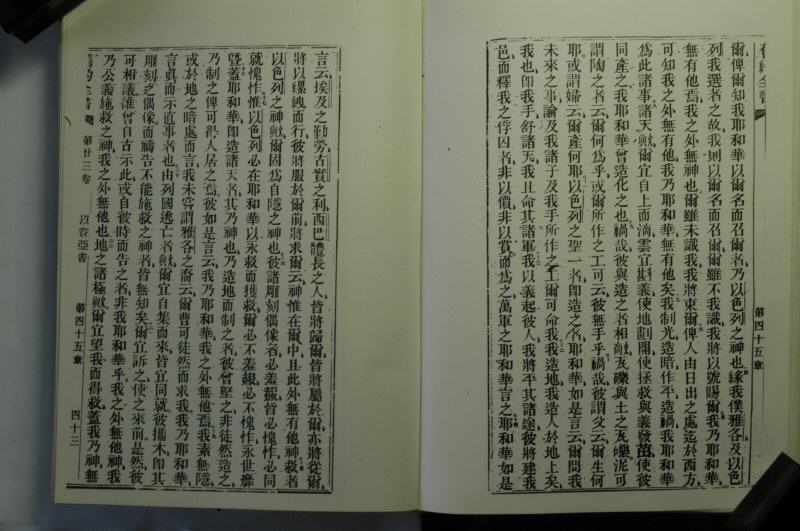 舊約全書
第四十五章
爾俾爾知我耶和華以爾名而召爾名者乃以色列之神也緣我僕雅各及以色
列我選者之故我則以爾名而召爾爾雖不我識我將以號賜爾我乃耶和華
無有他焉我之外無神也爾雖未識我我將束爾俾人由日出之處迄於西方
可知我之外無有他我乃耶和華無有他矣我制光造暗作平造禍我耶和華
為此諸事諸天歟爾宜自上而滴雲宜斟義使地劃開使拯救與義發苗使彼
同產之我耶和華曾造化之也禍哉彼與造之者相敵瓦礫與土之瓦礫泥可
謂陶之者云爾何為乎或爾所作之工可云彼無手乎禍哉彼謂父云爾生何
耶或謂婦云爾產何耶以色列之聖一名即造之者耶和華如是言云爾問我
未來之事論及我諸子及我手所作之工爾可命我我造地我造人於地上矣
我也即我手舒諸天我且命其諸軍我以義起彼人我將平其諸途彼將建我
邑而釋我之俘囚者非以價非以賞而為之萬軍之耶和華言之耶和華如是
言云埃及之勤勞古實之利西巴體長之人皆將歸爾皆將屬於爾亦將從爾
將以縲絏而行彼將服於爾前將求爾云神惟在爾中且此外無有他神救者
以色列之神歟爾固為自隱之神也彼諸雕刻偶像者必羞赧皆必愧怍必同
就愧怍惟以色列必在耶和華以永救而獲救爾必不羞赧必不愧怍永世靡
暨蓋耶和華即造諸天者其乃神也乃造地而制之者彼曾堅之非徒然造之
乃制之俾可得人居之焉彼如是言云我乃耶和華我之外無他焉我素無隱
或於地之暗處而言我未嘗謂雅各之裔云爾曹可徒然而求我我乃耶和華
言真而示直事者也由列國逃亡者歟爾宜自集而來皆宜同就彼攜木即其
雕刻之偶像而禱告不能施救之神者皆無知矣爾宜訴之使之來前是然彼
可相議誰曾自古示此或自彼時而告之者非我耶和華乎我之外無他神我
乃公義施救之神我之外無他也地之諸極歟爾宜望我而得救蓋我乃神無
舊約全書
第廿三卷
以賽亞書
第四十五章
四十三